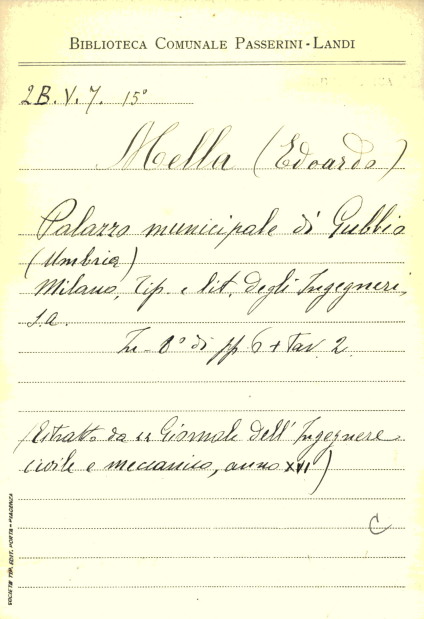 BIBLIOTECA COMUNALE PASSERINI-LANDI
2B.V.7. 15°
Mella (Edoardo)
Palazzo municipale di Gubbio
(Umbria)
Milano, Tip. e lit. degli Ingegneri,
s.a.
In-8° di pp 6 + tav. 2.
(Estratto da Giornale dell'Ingegnere
civile e meccanico, anno XVI)
C
SOCIETÀ TIP. EDIT. PORTA - PIACENZA